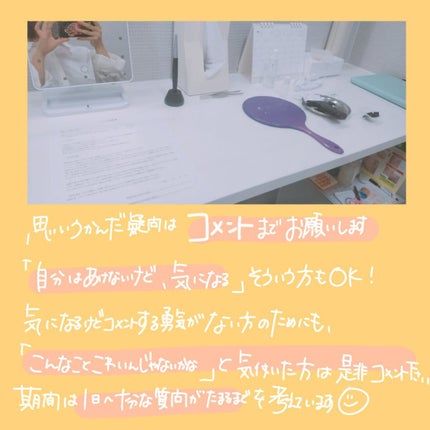 思いうかんだ疑問は コメントまでお願いします
「自分はあけないけど、気になる」そういう方もOK!
気になるけどコメントする勇気がない方のためにも、
「こんなこと いいんじゃないかな」と気付いた方は是非コメント下さい
期間は1日へ十分な質問がたまるまでを考えています